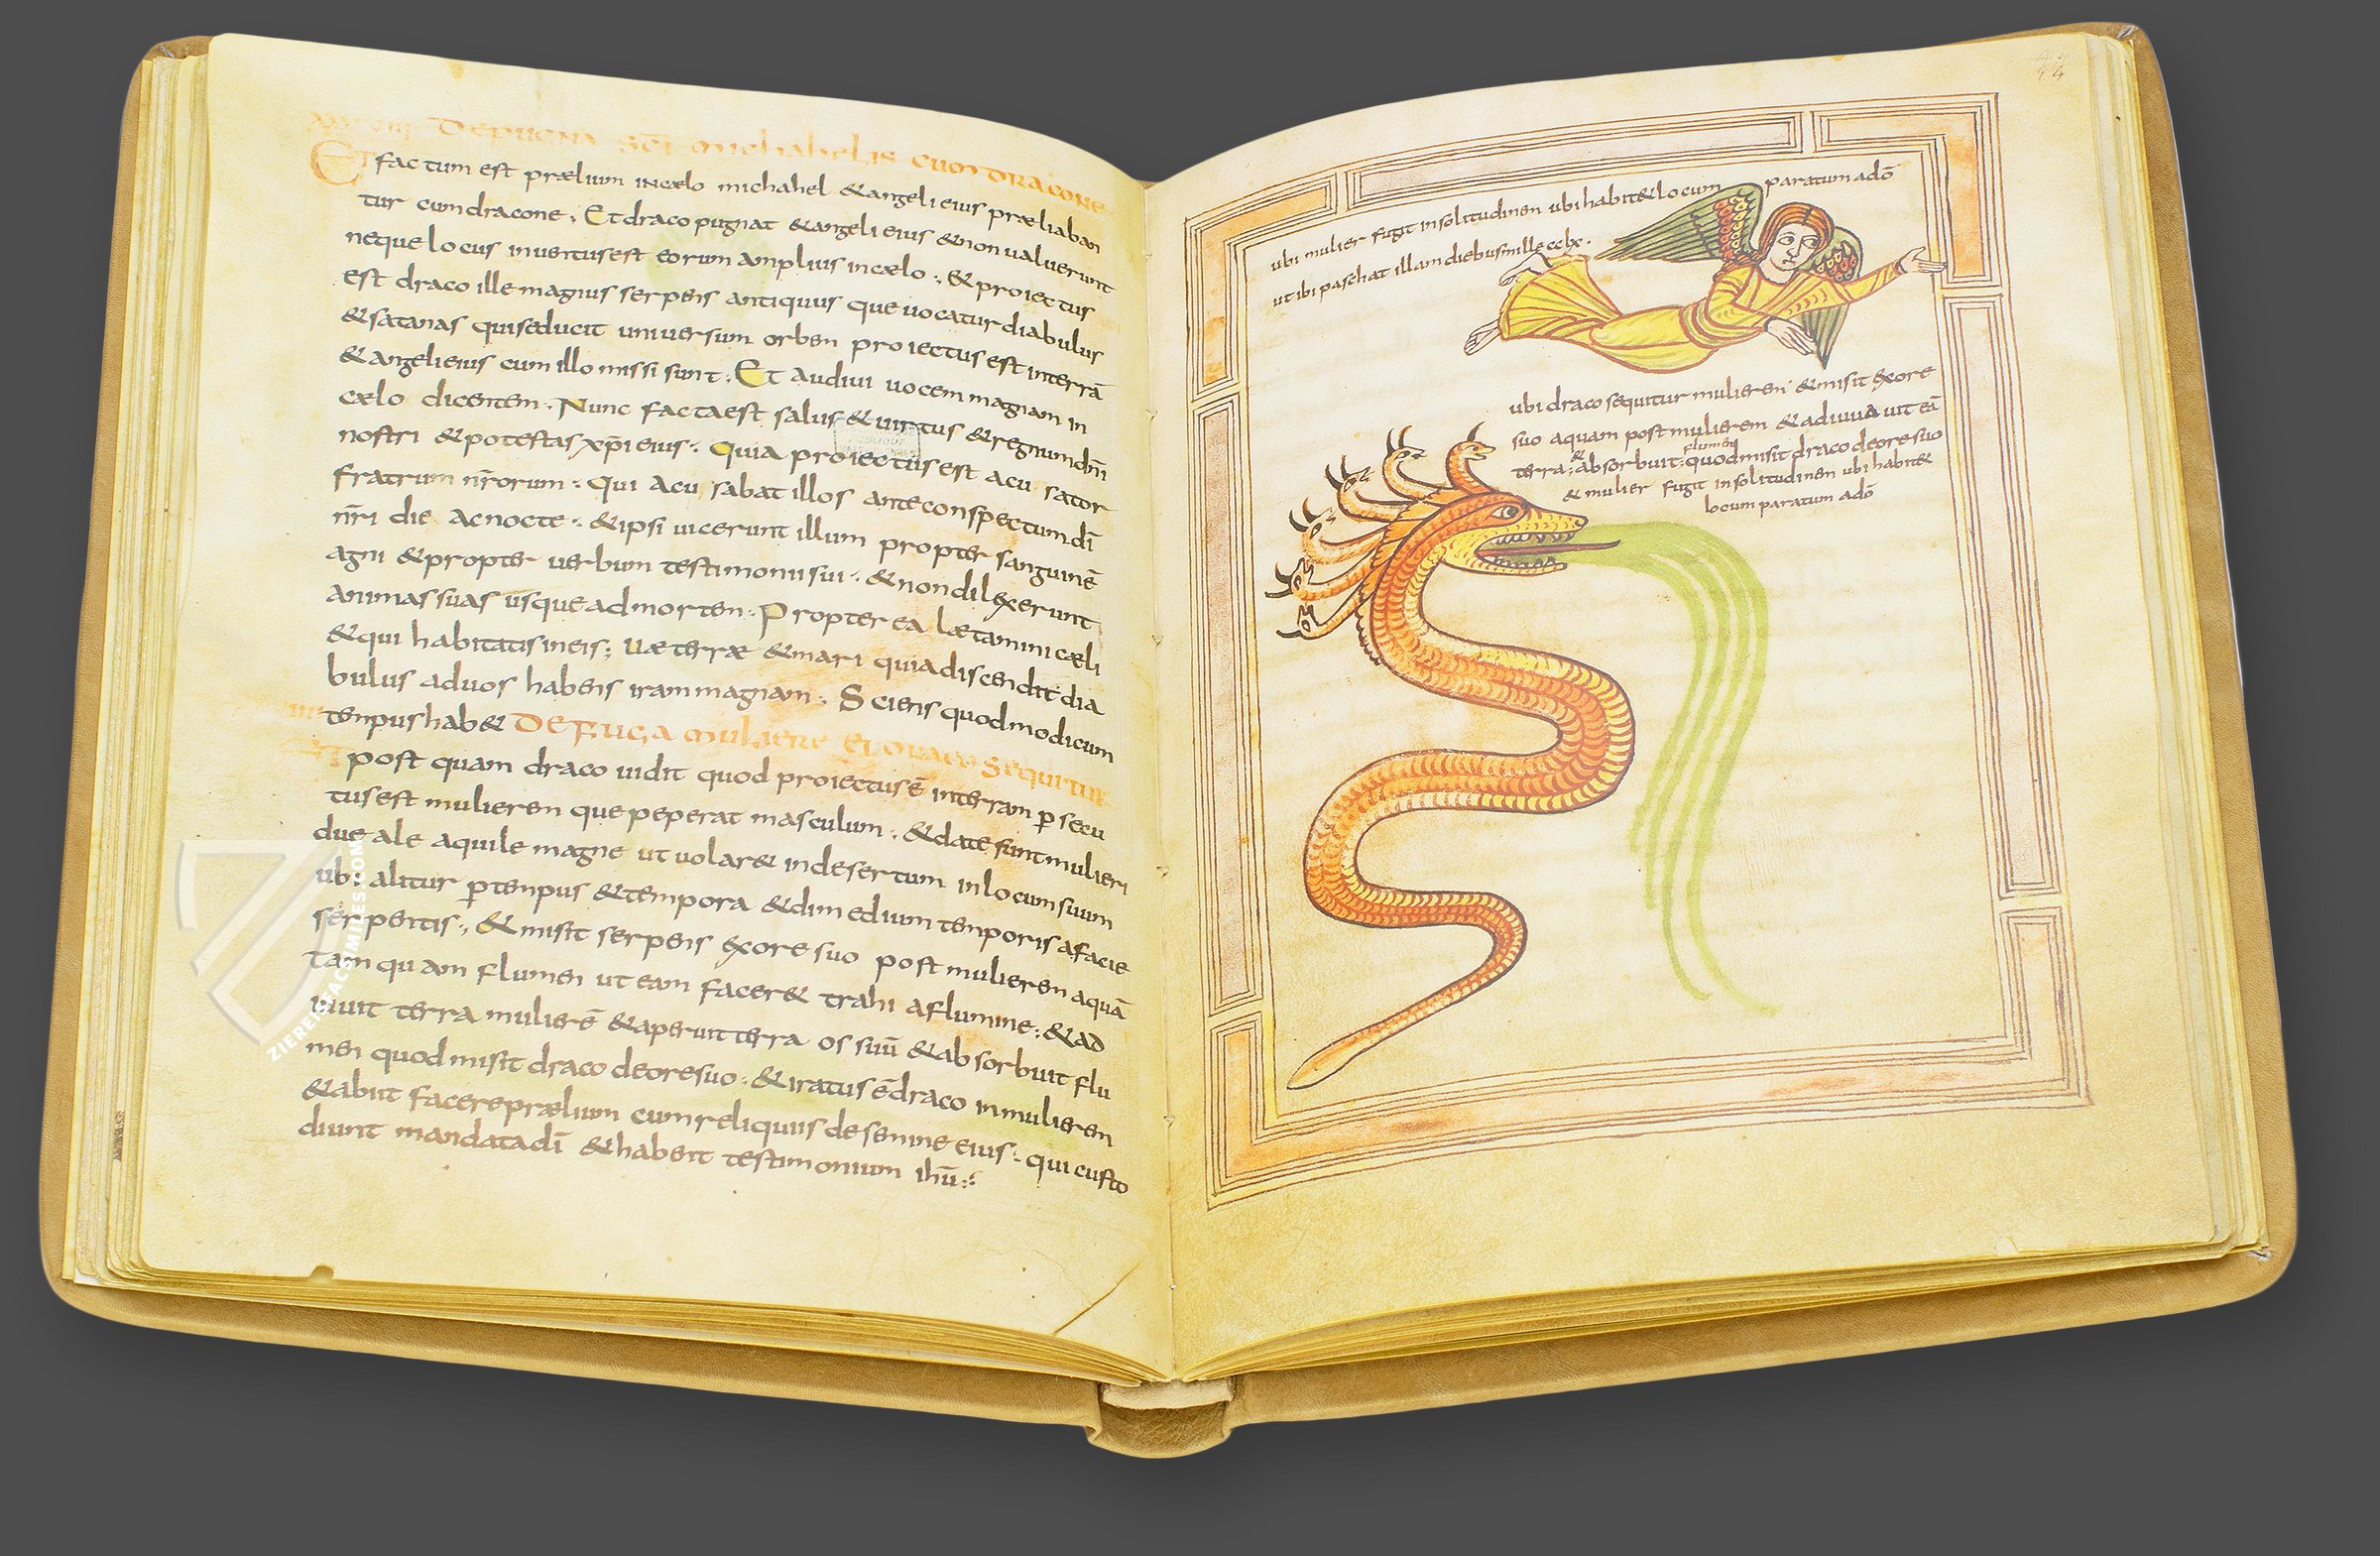 DE PUGNA SCI michahelis CUM DRACONE
ET factum est prælium in cælo michahel & angeli eius præliaban
tur cum dracone; Et draco pugnat & angeli eius & non ualuerunt
neque locus inuentus est eorum amplius in cælo; & proiectus
est draco ille magnus serpens antiquus que uocatur diabulus
& satanas qui seducit uniuersum orben proiectus est in terrā
& angeli eius cum illo missi sunt; Et audiui uocem magnam in
cælo dicentem; Nunc facta est salus & uirtus & regnum dn̄i
nostri & potestas xp̄i eius; Quia proiectus est acusator
fratrum nr̄orum; Qui acusabat illos ante conspectum dī
nr̄i die ac nocte; & ipsi uicerunt illum propter sanguinē
agni & propter uerbum testimonii sui; & non dilexerunt
animas suas usque ad morten; Propterea lætamini cæli
& qui habitatis in eis; Uæ terræ & mari quia discendit dia
bulus ad uos habens iram magnam; Sciens quod modicum
tenpus hab& DE FUGA muliere ET DRACO sequitur
ET post quam draco uidit quod proiectus ē in terram ꝑsecu
tus est mulieren que peperat masculum; & date sunt mulieri
due ale aquile magne ut uolar& in desertum in locum suum
ubi alitur ꝑ tenpus & tempora & dimedium tenporis a facie
serpentis; & misit serpens exore suo post mulieren aquā
tamquam flumen ut eam facer& trahi a flumine; & ad
iuuit terra mulierē & aperuit terra os suū & absorbuit flu
men quod misit draco de ore suo; & iratus ē draco in mulieren
& abiit facere prælium cum reliquiis de semine eius; qui custo
diunt mandata dī & habent testimonium ihū;
44
ubi mulier fugit in solitudinen ubi habit& locum paratum a dō
ut ibi paschat illam diebus mille cclx.
ubi draco sequitur mulieren & misit exore
suo aquam post mulierem & adiuuauit eā
terra; & absorbuit flumen quod misit draco de ore suo
& mulier fugit in solitudinen ubi habit&
locum paratum a dō
ZIEREIS FACSIMILES.COM